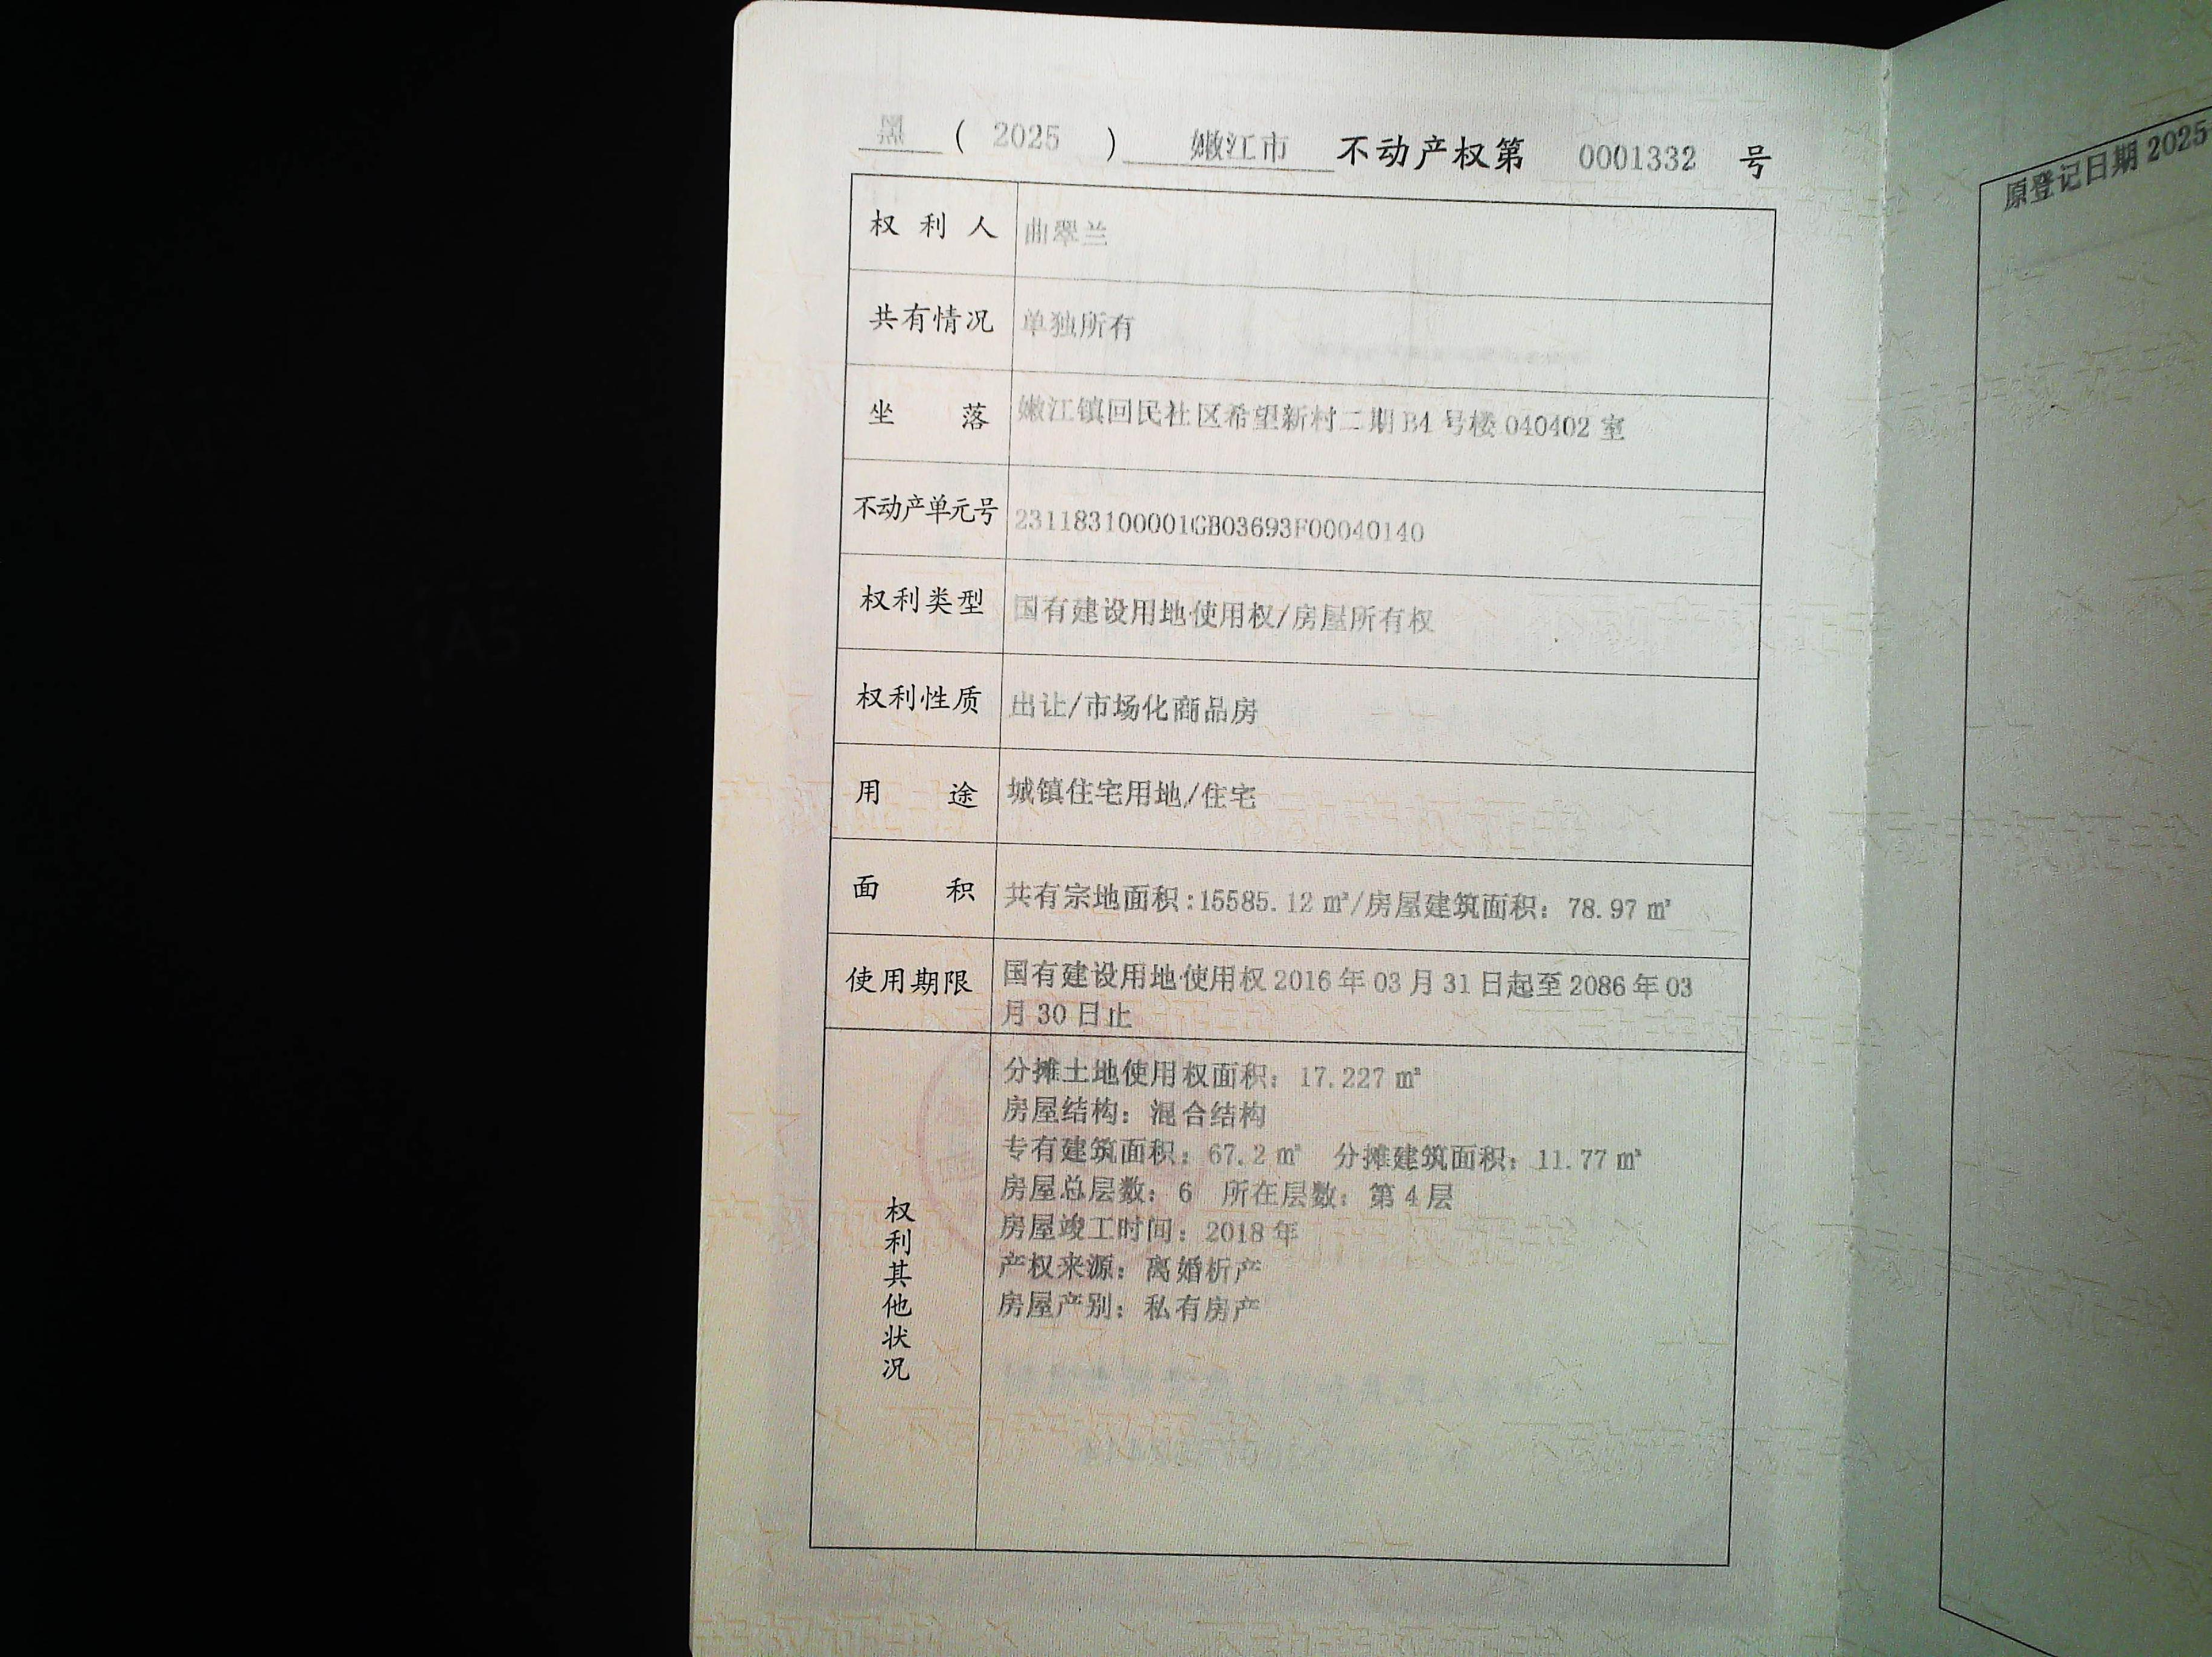 黑 ( 2025 ) 嫩江市 不动产权第 0001332 号
权利人 曲翠兰
共有情况 单独所有
坐落 嫩江镇回民社区希望新村二期B4号楼040402室
不动产单元号 231183100001GB03693F00040140
权利类型 国有建设用地使用权/房屋所有权
权利性质 出让/市场化商品房
用途 城镇住宅用地/住宅
面积 共有宗地面积:15585.12㎡/房屋建筑面积：78.97㎡
使用期限 国有建设用地使用权2016年03月31日起至2086年03
月30日止
权利其他状况
分摊土地使用权面积：17.227㎡
房屋结构：混合结构
专有建筑面积：67.2㎡ 分摊建筑面积：11.77㎡
房屋总层数：6 所在层数：第4层
房屋竣工时间：2018年
产权来源：离婚析产
房屋产别：私有房产
原登记日期2025